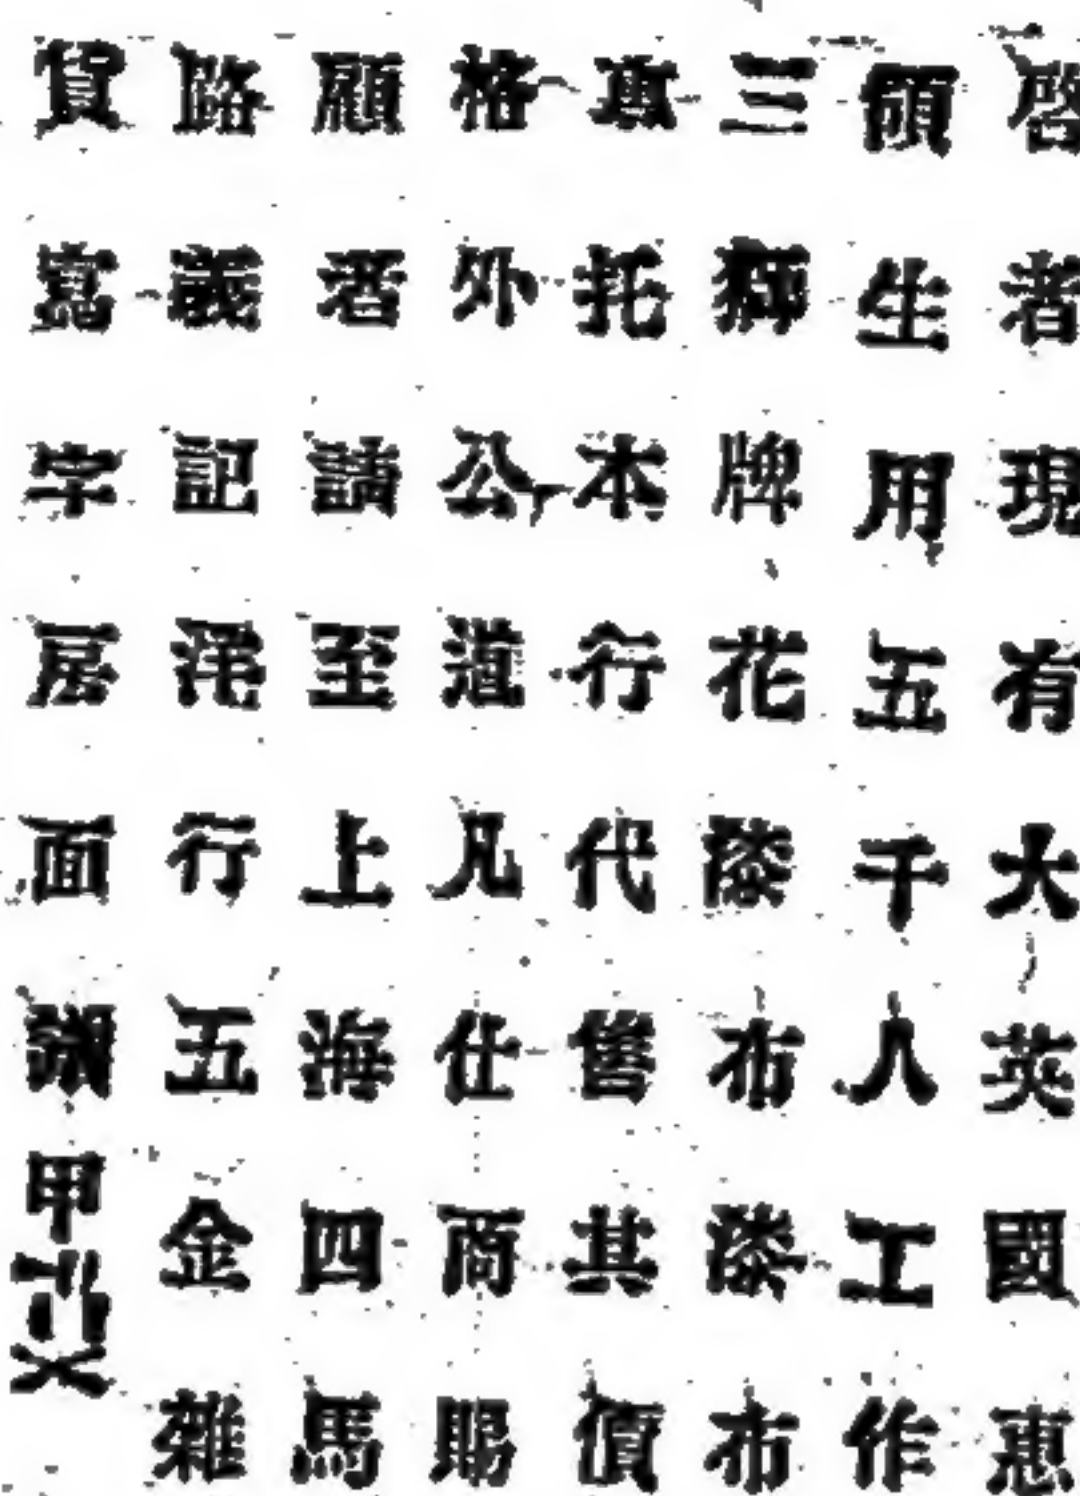 啓者現有大英國惠
頓生用五千人工作
三獅牌花漆布漆布
專托本行代售其價
格外公道凡仕商賜
顧者請至上海四馬
路義記洋行五金雜
貨寫字房面議甲